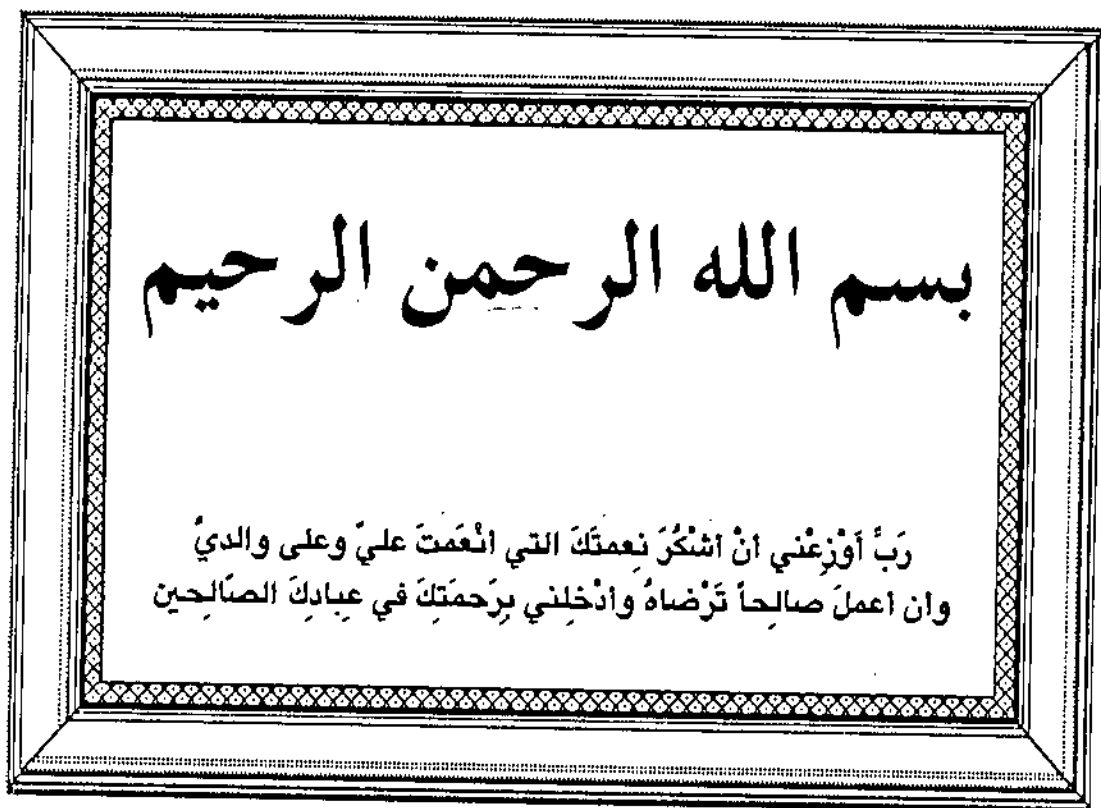 بسم الله الرحمن الرحيم
رَبَّ أَوْزِعْني أنْ أشْكُرَ نِعمتَكَ التي أنْعَمتَ عليّ وعلى والديُّ
وأن أعملَ صالِحاً تَرْضاهُ وأدْخِلني بِرَحمَتِكَ في عِبادِكَ الصّالِحين